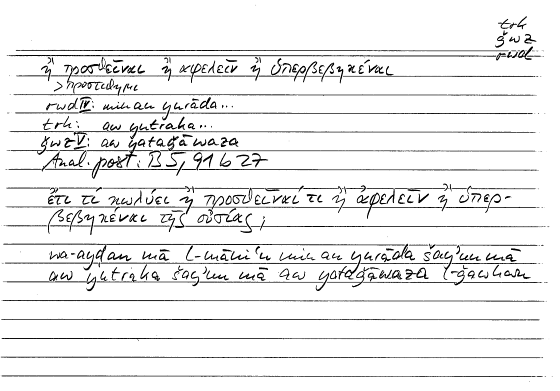 trk
ǧwz
rwd
ἢ προσθεῖναι ἢ ἀφελεῖν ἢ ὑπερβεβηκέναι
> προστίθημι
rwd IV: min an yurāda...
trk: aw yutraka...
ǧwz VI: aw yataǧāwaza
Anal. post.: B 5, 91 b 27
ἔτι τί κωλύει ἢ προσθεῖναί τι ἢ ἀφελεῖν ἢ ὑπερ-
βεβηκέναι τῆς οὐσίας;
wa-ayḍan mā l-māniʿu min an yurāda šayʾun mā
aw yutraka šayʾun mā aw yataǧāwaza l-ǧawhara